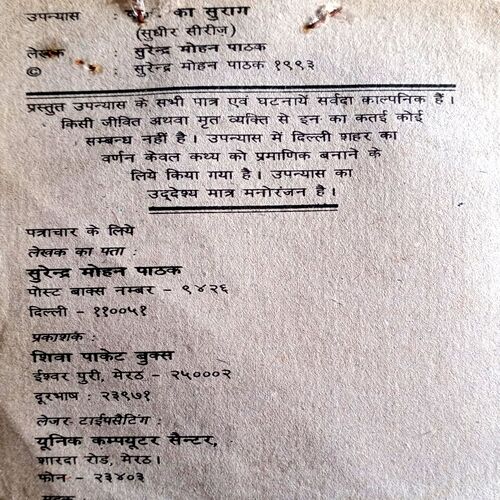 उपन्यास : का सुराग
(सुधीर सीरीज)
लेखक : सुरेन्द्र मोहन पाठक
© : सुरेन्द्र मोहन पाठक १९९३
प्रस्तुत उपन्यास के सभी पात्र एवं घटनायें सर्वदा काल्पनिक हैं।
किसी जीवित अथवा मृत व्यक्ति से इन का कतई कोई
सम्बन्ध नहीं है। उपन्यास में दिल्ली शहर का
वर्णन केवल कथ्य को प्रमाणिक बनाने के
लिये किया गया है। उपन्यास का
उद्देश्य मात्र मनोरंजन है।
पत्राचार के लिये
लेखक का पता :
सुरेन्द्र मोहन पाठक
पोस्ट बाक्स नम्बर – ९४२६
दिल्ली – ११००५१
प्रकाशक :
शिवा पाकेट बुक्स
ईश्वर पुरी, मेरठ – २५०००२
दूरभाष : २३९७१
लेजर टाईपसैटिंग :
यूनिक कम्पयूटर सैन्टर,
शारदा रोड, मेरठ।
फोन – २३४०३